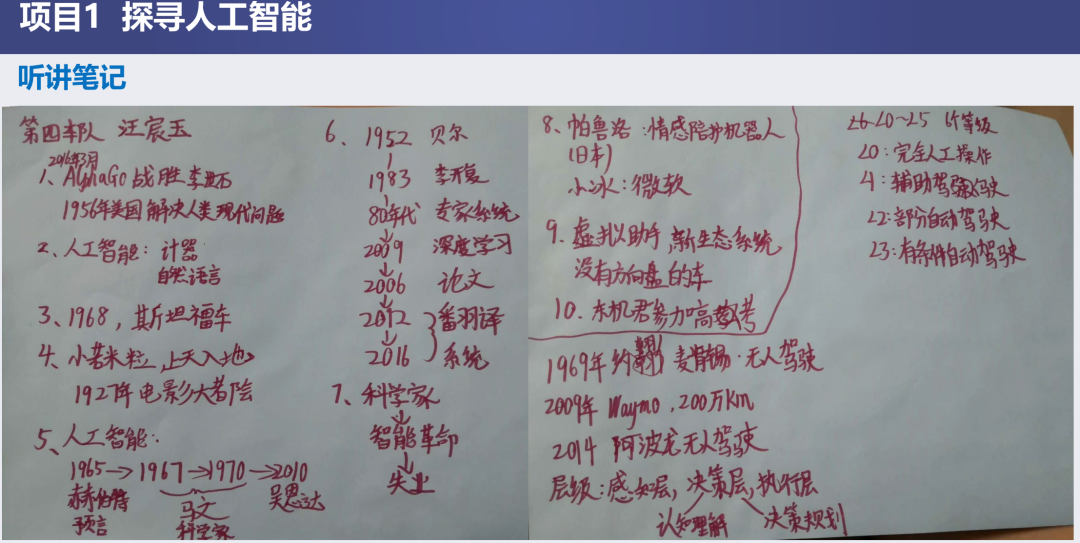 项目1 探寻人工智能
听讲笔记
第四车队 汪宸玉
2016年3月
1、AlphaGo 战胜李世石
1956年美国解决人类现代问题
2、人工智能：计器
自然语言
3、1968，斯坦福车
4、小若米粒，上天入地
1927年电影大者险
5、人工智能：
1965→1967→1970→2010
赫伯特 马文 吴恩达
预言 科学家
6、1952 贝尔
1983 李开复
80年代 专家系统
2009 深度学习
2006 论文
2012 番羽译
2016 系统
7、科学家
智能革命
失业
8、帕鲁洛：情感陪护机器人
(日本)
小冰：微软
9、虚拟助手，新生态系统
没有方向盘的车
10、东机君参加高数考
1969年约翰·麦肯锡·无人驾驶
2009年 Waymo，200万Km
2014 阿波龙无人驾驶
层级：感知层，决策层，执行层
认知理解 决策规划
L0~L5 6个等级
L0：完全人工操作
辅助驾驶
L2：部分自动驾驶
L3：有条件自动驾驶